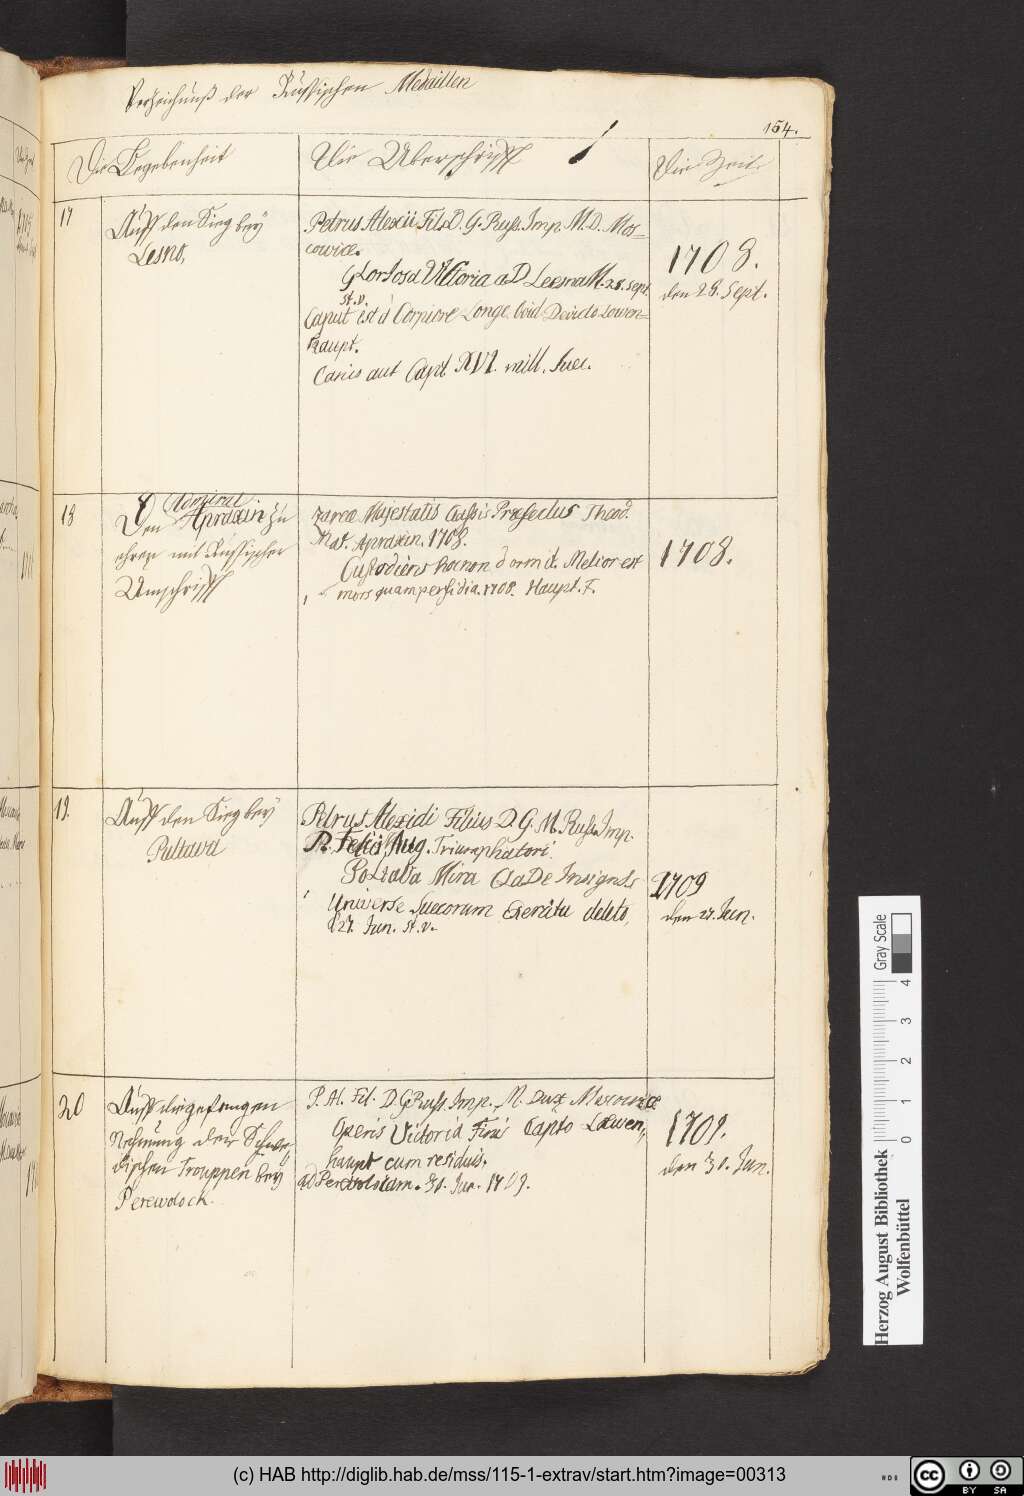 Verzeichnuß der Rußischen Medaillen
154.
Die Begebenheit
Die Uberschrifft
Die Zeit
17
Auff den Sieg bey
Lesno,
Petrus Alexii Fil. D. G. Russ. Imp. M. D. Mos=
coviæ.
Gloriosa Victoria ad Leesna M. 28. Sept.
st. v.
Caput est à Corpore Longe Lowen=
haupt.
Cæsis aut Capt. XVI. mill. Suec.
1708.
den 28. Sept.
18
Admiral
Den Apraxin zu
ehren mit Rußischer
Umschrifft
Majestatis Classis Præfectus Theod.
Mat. Apraxin. 1708.
Custodiens hoc non dormit. Melior est
mors quam perfidia. 1708. Haupt. F.
1708.
19.
Auff den Sieg bey
Pultawa
Petrus Alexidi Filius D. G. M. Russ. Imp.
P. Felici Aug. Triumphatori.
Poltava Mira CLaDe InsignIs
Universe Suecorum Exercitu deleto,
d 27. Jun. st. v.
1709
den 27. Jun.
20
Auff die gefangen
Nehmung der Schwe=
dischen Trouppen bey
Perewolock.
P. Al. Fil. D. G. Russ. Imp. M. Dux Moscoviæ
Operis Victoria Finis Capto Læwen=
haupt cum residuis.
ad Perevolotzam. 30. Jun. 1709.
1709.
den 30. Jun.
Herzog August Bibliothek
Wolfenbüttel
0 1 2 3 4
Gray Scale
(c) HAB http://diglib.hab.de/mss/115-1-extrav/start.htm?image=00313
HAB
cc
BY SA